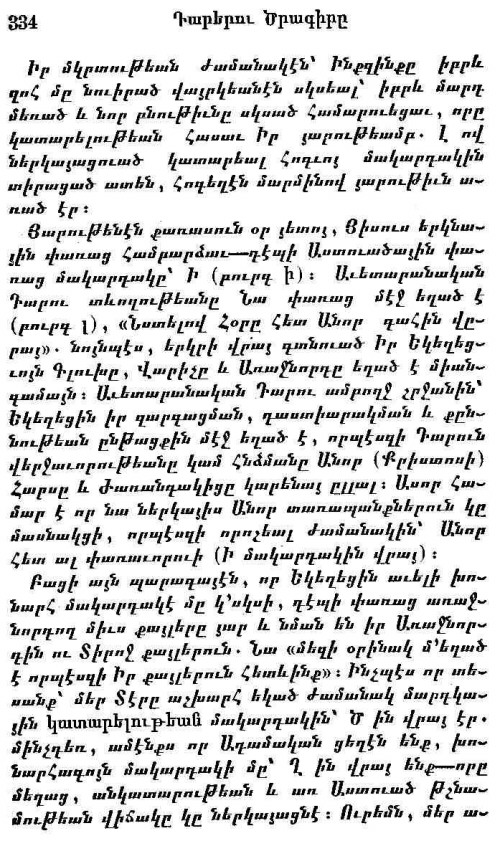 334
Դարերու Ծրագիրը
Իր մկրտութեան ժամանակէն՝ Ինքզինքը իբրև
զոհ մը նուիրած վայրկեանէն սկսեալ՝ իբրև մարդ
մեռած և նոր բնութիւնը սկսած համարուեցաւ, որը
կատարելութեան հասաւ Իր յարութեամբ. Լ ով
ներկայացուած կատարեալ հոգւոյ մակարդակին
տիրացած ատեն, հոգեղէն մարմինով յարութիւն ա-
ռած էր։
Յարութենէն քառասուն օր յետոյ, Յիսուս երկնա-
յին փառաց համբարձաւ—դէպի Աստուածային փա-
ռաց մակարդակը՝ Ի (բուրգ ի)։ Աւետարանական
Դարու տևողութեանը Նա փառաց մէջ եղած է
(բուրգ լ), «Նստելով Հօրը հետ Անոր գահին վը-
րայ». նոյնպէս, երկրի վրայ գտնուած Իր Եկեղեց-
ւոյն Գլուխը, Վարիչը և Առաջնորդը եղած է միան-
գամայն։ Աւետարանական Դարու ամբողջ շրջանին՝
Եկեղեցին իր զարգացման, դաստիարակման և քըն-
նութեան ընթացքին մէջ եղած է, որպէսզի Դարուն
վերջաւորութեանը կամ Հնձմանը Անոր (Քրիստոսի)
Հարսը և Ժառանգակիցը կարենայ ըլլալ։ Ասոր հա-
մար է որ նա ներկայիս Անոր տառապանքներուն կը
մասնակցի, որպէսզի որոշեալ ժամանակին՝ Անոր
հետ ալ փառաւորուի (Ի մակարդակին վրայ)։
Բացի այն պարագայէն, որ Եկեղեցին աւելի խո-
նարհ մակարդակէ մը կ՚սկսի, դէպի փառաց առաջ-
նորդող միւս քայլերը յար և նման են իր Առաջնոր-
դին ու Տիրոջ քայլերուն. Նա «մեզի օրինակ մ՚եղած
է որպէսզի Իր քայլերուն հետևինք»։ Ինչպէս որ տե-
սանք՝ մեր Տէրը աշխարհ եկած ժամանակ մարդկա-
յին կատարելութեան մակարդակին՝ Ծ ին վրայ էր.
մինչդեռ, ամէնքս որ Ադամական ցեղէն ենք, խո-
նարհագոյն մակարդակի մը՝ Ղ ին վրայ ենք—որը
մեղաց, անկատարութեան և առ Աստուած թշնա-
մութեան վիճակը կը ներկայացնէ։ Ուրեմն, մեր ա-